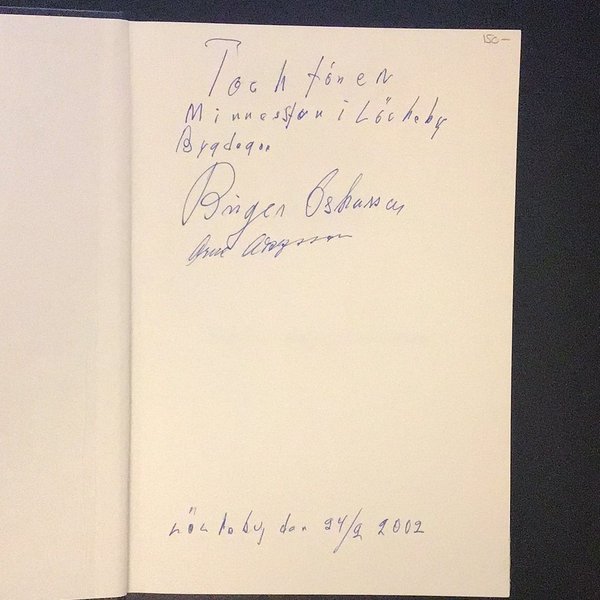 150-
Tack för en
Minnesstun i Löckeby
Bygdegår
Birger Oskarsson
Arne
Löckeby den 24/2 2002